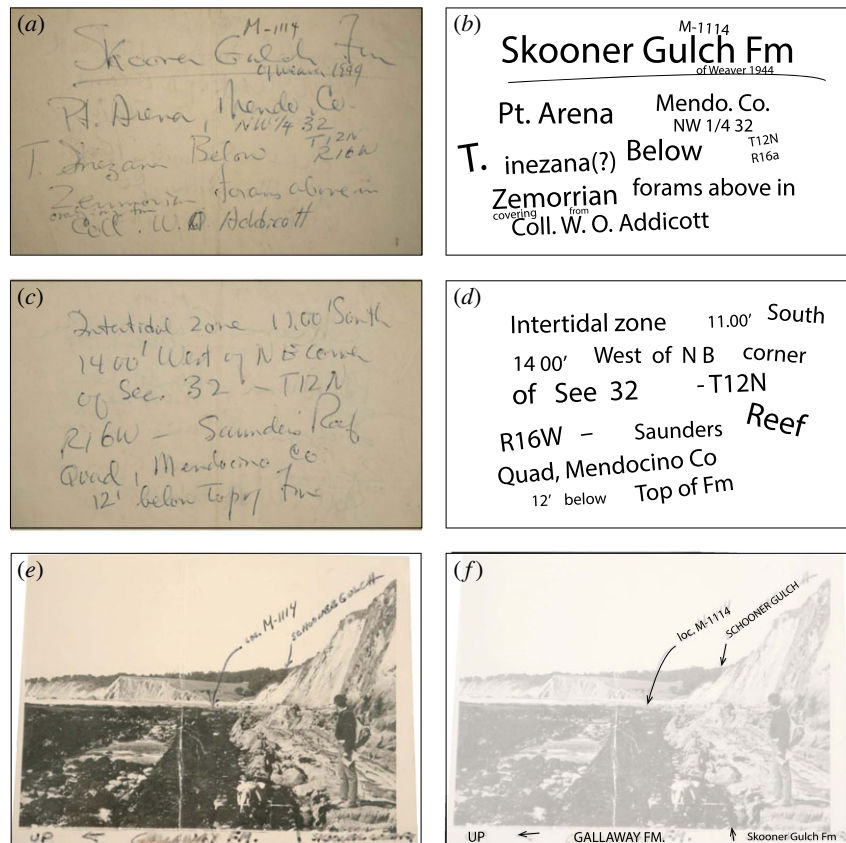 (a)
M-1114
Skooner Gulch Fm
of Weaver 1944
Pt. Arena, Mendo. Co.
NW 1/4 32
T12N
R16W
T. inezana Below
Zemorrian forams above in
Coll. W. O. Addicott
(b)
M-1114
Skooner Gulch Fm
of Weaver 1944
Pt. Arena
Mendo. Co.
NW 1/4 32
T12N
R16a
T. inezana(?) Below
Zemorrian forams above in
covering from
Coll. W. O. Addicott
(c)
Intertidal zone 11.00' South
1400' West of NE Corner
of Sec. 32 - T12N
R16W - Saunders Reef
Quad, Mendocino Co
12' below Top of Fm
(d)
Intertidal zone 11.00' South
14 00' West of N B corner
of See 32 -T12N
R16W – Saunders Reef
Quad, Mendocino Co
12' below Top of Fm
(e)
loc. M-1114
SCHOONER GULCH
UP ← GALLAWAY FM.
(f)
loc. M-1114
SCHOONER GULCH
UP ← GALLAWAY FM. Skooner Gulch Fm